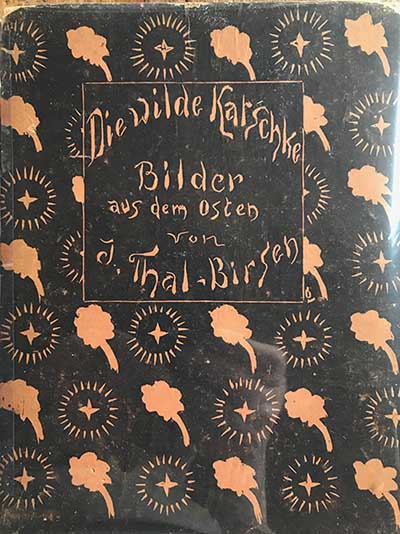 Die wilde Katschke
Bilder
aus dem Osten
von
J. Thal-Birsen